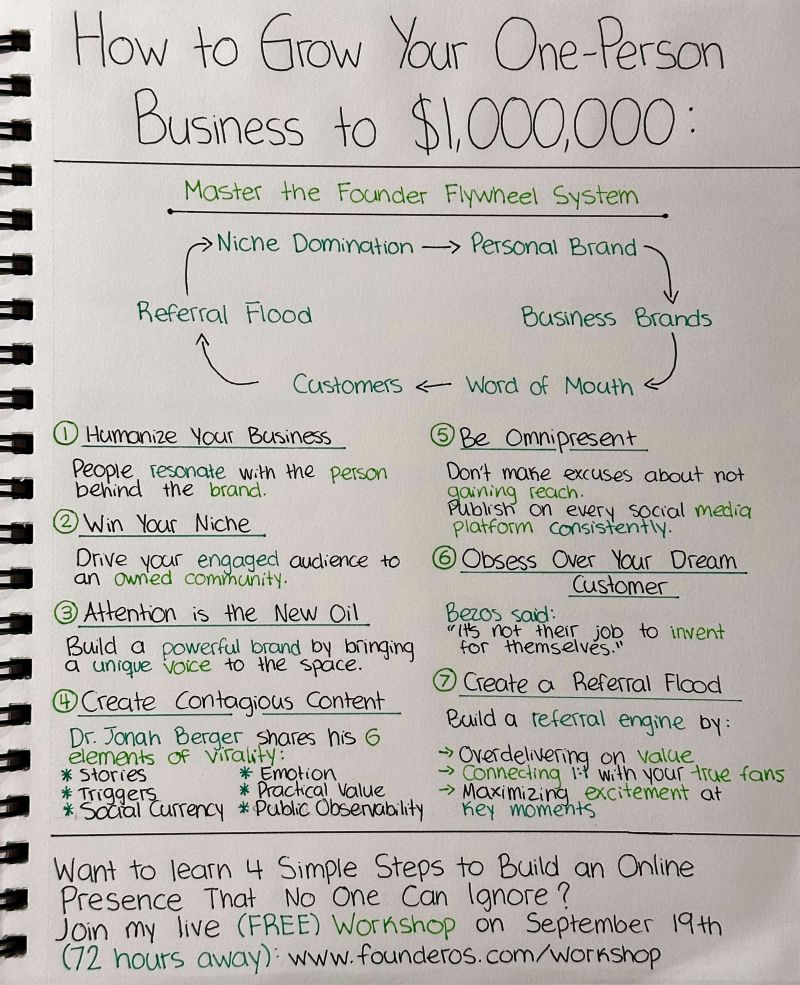 How to Grow Your One-Person
Business to $1,000,000:
Master the Founder Flywheel System
Niche Domination → Personal Brand
Referral Flood
Business Brands
Customers ← Word of Mouth
① Humanize Your Business
People resonate with the person
behind the brand.
② Win Your Niche
Drive your engaged audience to
an owned community.
③ Attention is the New Oil
Build a powerful brand by bringing
a unique voice to the space.
④ Create Contagious Content
Dr. Jonah Berger shares his 6
elements of virality:
* Stories
* Triggers
* Social Currency
* Emotion
* Practical Value
* Public Observability
⑤ Be Omnipresent
Don't make excuses about not
gaining reach.
Publish on every social media
platform consistently.
⑥ Obsess Over Your Dream
Customer
Bezos said:
"It's not their job to invent
for themselves."
⑦ Create a Referral Flood
Build a referral engine by:
→ Overdelivering on value
→ Connecting 1:1 with your true fans
→ Maximizing excitement at
key moments
Want to learn 4 Simple Steps to Build an Online
Presence That No One Can Ignore?
Join my live (FREE) Workshop on September 19th
(72 hours away): www.founderos.com/workshop